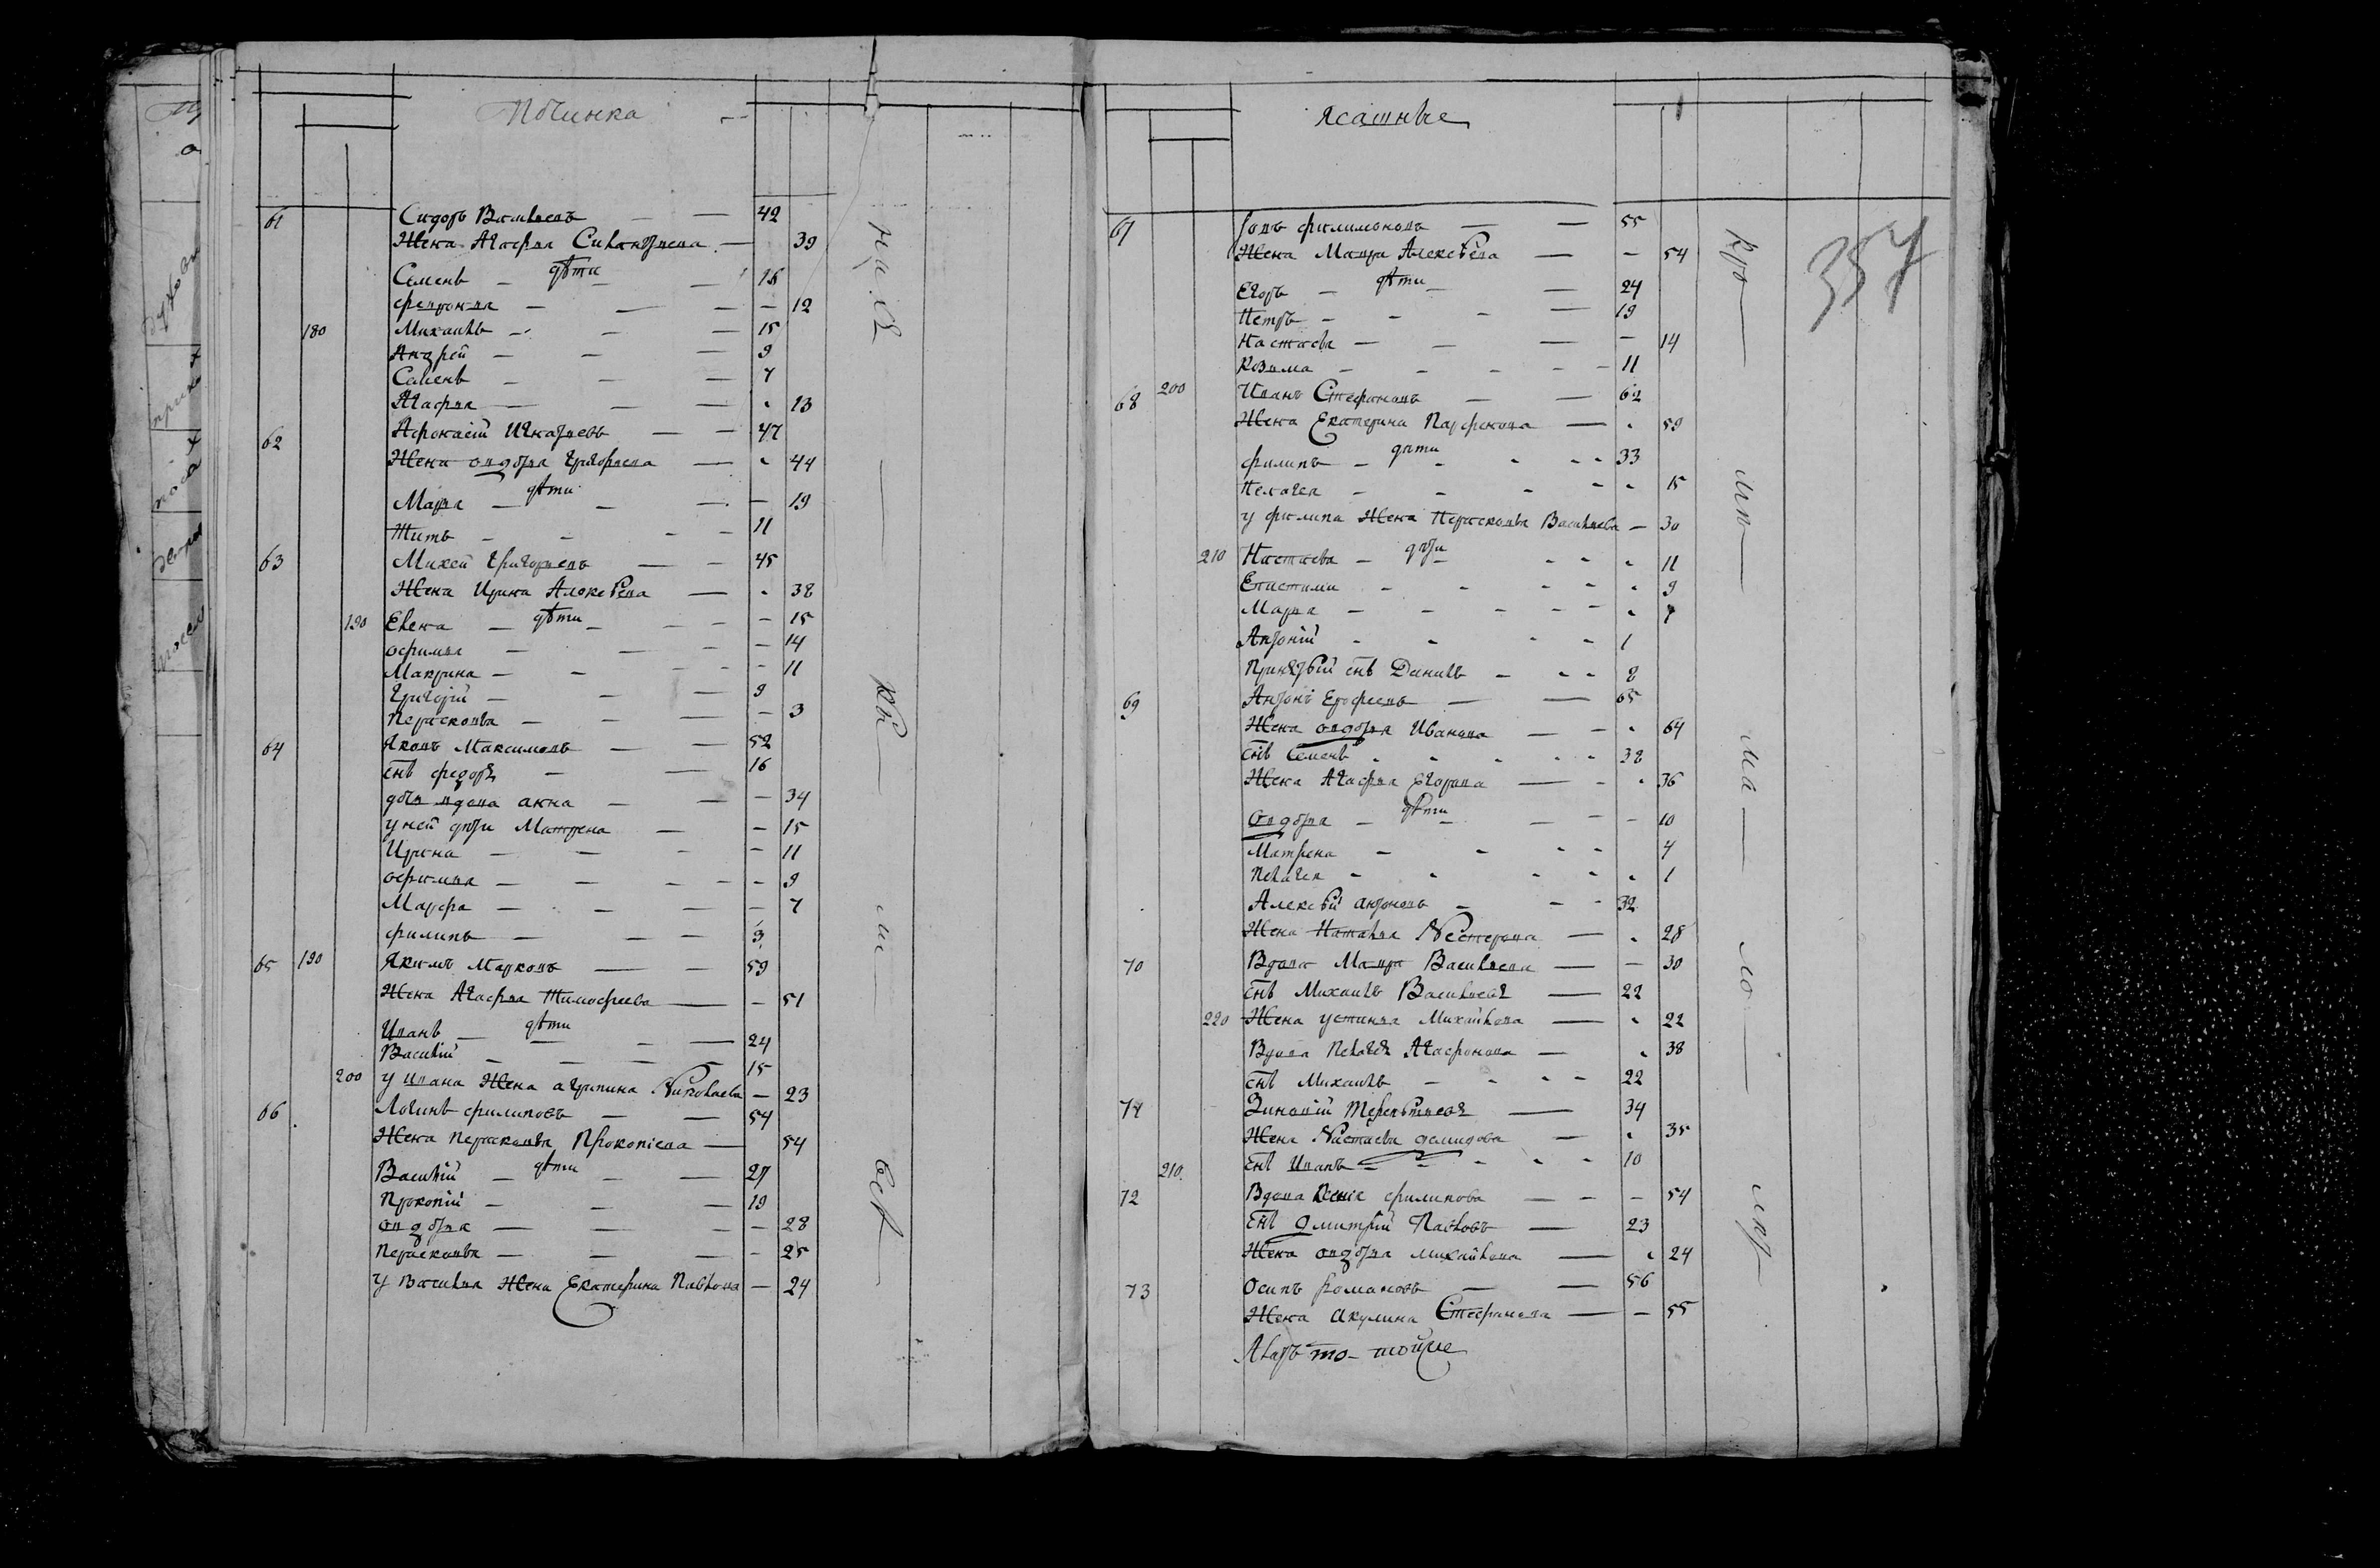 Починка
61 Сидоръ Васильевъ — 42
Жена Агафья Силантьева — 39
дѣти
Семенъ — 18
Февронья — 12
180 Михаилъ — 15
Андрей — 9
Семенъ — 7
Агафья — 13
62 Афонасій Игнатьевъ — 47
Жена Авдотья Григорьева — 44
дѣти
Марья — 19
Титъ — 11
63 Михей Григорьевъ — 45
Жена Ирина Алексѣева — 38
дѣти
190 Елена — 15
Офимья — 14
Маврина — 11
Григорій — 9
Парасковья — 3
64 Яковъ Максимовъ — 52
снъ Федоръ — 16
дочь вдова Анна — 34
у ней дѣти Матрена — 15
Ирина — 11
Офимья — 9
Марфа — 7
Филипъ — 3
65 190 Якимъ Марковъ — 59
Жена Агафья Тимофеева — 51
дѣти
Иванъ — 24
Василій — 15
200 у Ивана Жена Агрипина Николаева — 23
66 Логинъ Филиповъ — 54
Жена Парасковья Прокопіева — 54
дѣти
Василій — 27
Прокопій — 19
Овдотья — 28
Парасковья — 25
у Василья Жена Екатерина Павлова — 24
Ясашные
357
67 Іовъ Филимоновъ — 55
Жена Мавра Алексѣева — 54
дѣти
Егоръ — 24
Петръ — 19
Настасья — 14
Козьма — 11
68 200 Иванъ Стефановъ — 62
Жена Екатерина Парфенова — 59
дѣти
Филипъ — 33
Пелагея — 15
у Филипа Жена Парасковья Васильева — 30
дѣти
210 Настасья — 11
Епистими — 9
Марья — 7
Антоній — 1
Принятый снъ Данилъ — 8
69 Антонъ Ерофеевъ — 65
Жена Овдотья Иванова — 64
снъ Семенъ — 38
Жена Агафья Егорова — 36
дѣти
Овдотья — 10
Матрена — 4
Пелагея — 1
Алексѣй Антоновъ — 32
Жена Наталья Нестерова — 28
70 Вдова Мавра Васильева — 30
снъ Михаилъ Васильевъ — 22
220 Жена Устинья Михайлова — 22
Вдова Пелагея Агафонова — 38
снъ Михаилъ — 22
71 Зиновій Терентьевъ — 34
Жена Настасья Демидова — 35
210 снъ Иванъ — 10
72 Вдова Ксенія Филипова — 54
снъ Дмитрій Павловъ — 23
Жена Овдотья Михайлова — 24
73 Осипъ Романовъ — 56
Жена Акулина Стефанова — 55